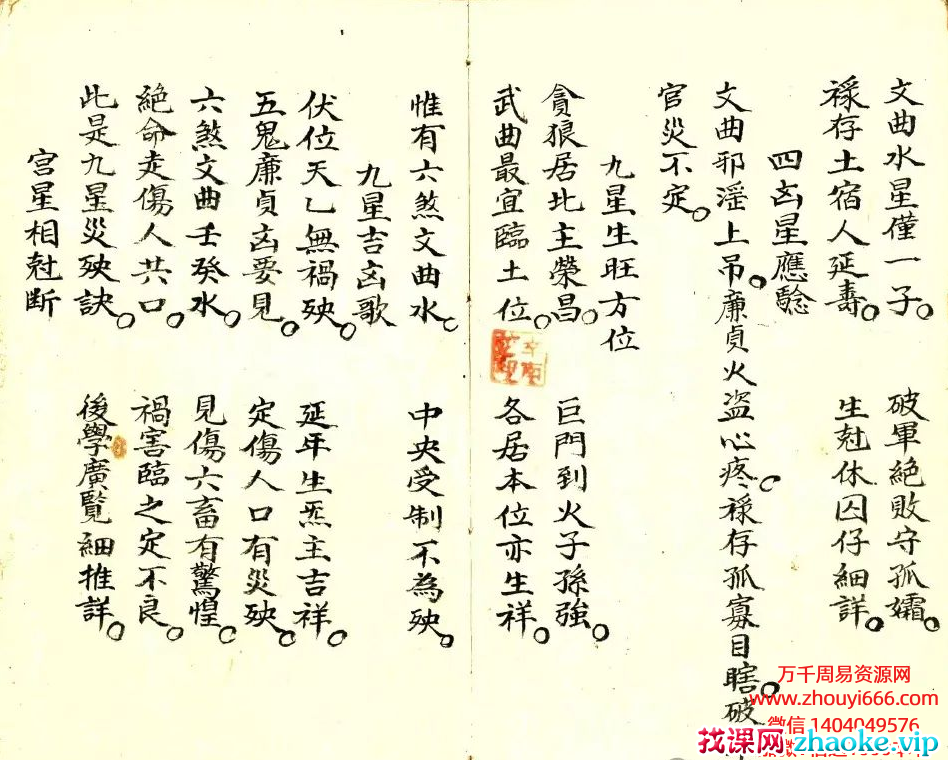 文曲水星僅一子。 破軍絕敗守孤孀。
祿存土宿人延壽。 生尅休囚仔細詳。
四凶星應驗
文曲邪淫上吊。廉貞火盗心疼。祿存孤寡目瞎。破
官災不定。
九星生旺方位
貪狼居北主榮昌。 巨門到火子孫強。
武曲最宜臨土位。 各居本位亦生祥。
惟有六煞文曲水。 中央受制不為殃。
九星吉凶歌
伏位天乙無禍殃。 延年生炁主吉祥。
五鬼廉貞凶要見。 定傷人口有災殃。
六煞文曲壬癸水。 見傷六畜有驚惶。
絕命走傷人共口。 禍害臨之定不良。
此是九星災殃訣。 後學廣覧細推詳。
宫星相尅斷
万千周易资源网
www.zhouyi666.com
微信 1404049576
找课网zhaoke.vip